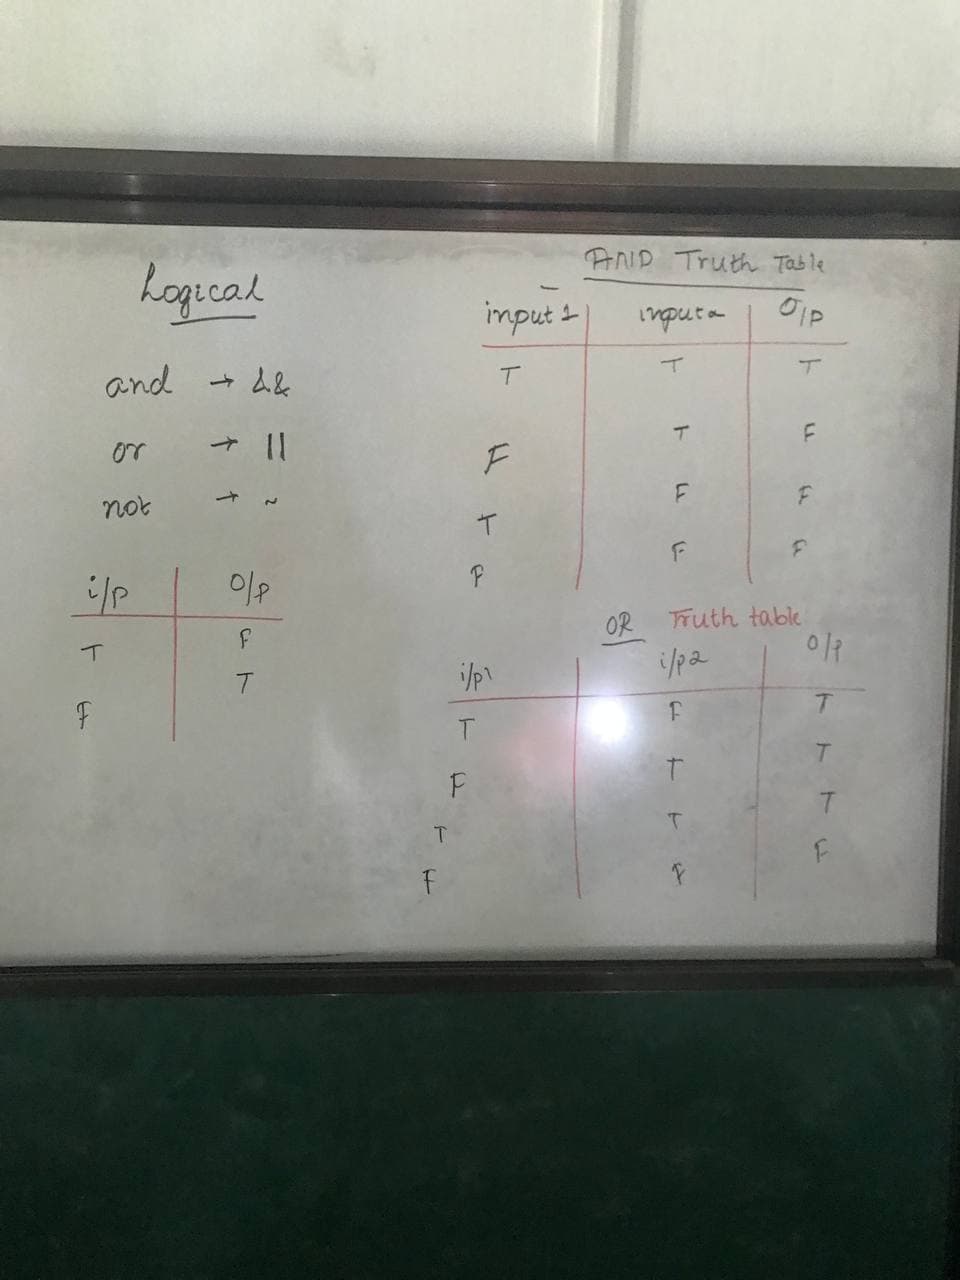 Logical
and → &&
or → ||
not → ~
i/p O/p
T F
F T
AND Truth Table
input 1 input 2 O/p
T T T
F T F
T F F
F F F
OR Truth table
i/p1 i/p2 O/p
T F T
F T T
T T T
F F F